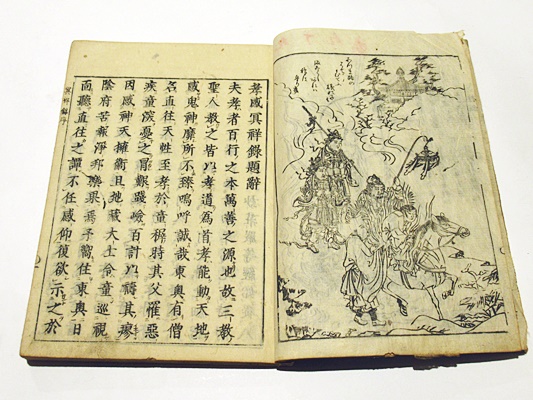 孝感冥祥錄題辭
夫孝者百行之本萬善之源也故三教
聖人教之皆以孝道為首孝能動天地
感鬼神靡所不臻嗚呼誠哉東奥有僧
名直往天性至孝於童稺時其父罹惡
疾童深憂之冒艱踐嶮百計以禱其瘳
因感神天擁衛且地藏大士令童巡視
陰府苦報淨邦樂果焉予嚮住東奥日
面聽直往之譚不任感仰復欲示之於